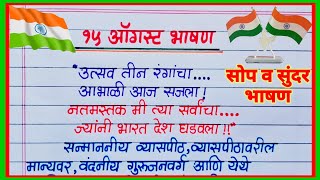 १५ ऑगस्ट भाषण
सोप व सुंदर
भाषण
"उत्सव तीन रंगांचा....
आभाळी आज सजला !
नतमस्तक मी त्या सर्वांचा....
ज्यांनी भारत देश घडवला !!"
सन्माननीय व्यासपीठ,व्यासपीठावरील
मान्यवर, वंदनीय गुरुजनवर्ग आणि येथे